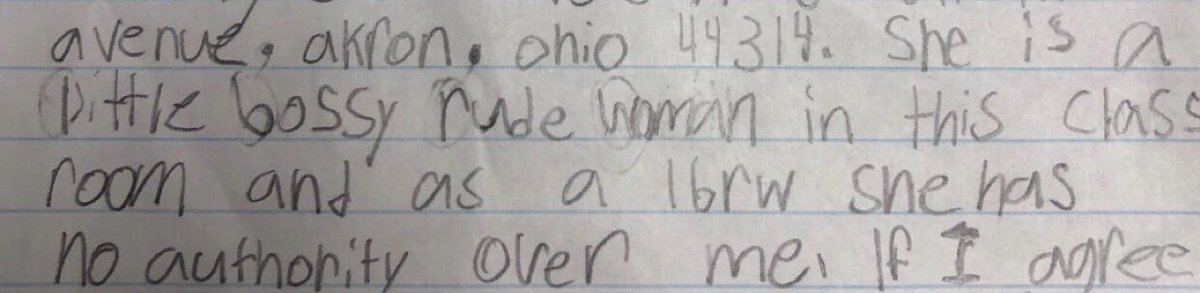 avenue, akron, ohio 44314. She is a
little bossy rude woman in this class
room and as a lbrw she has
no authority over me. If I agree